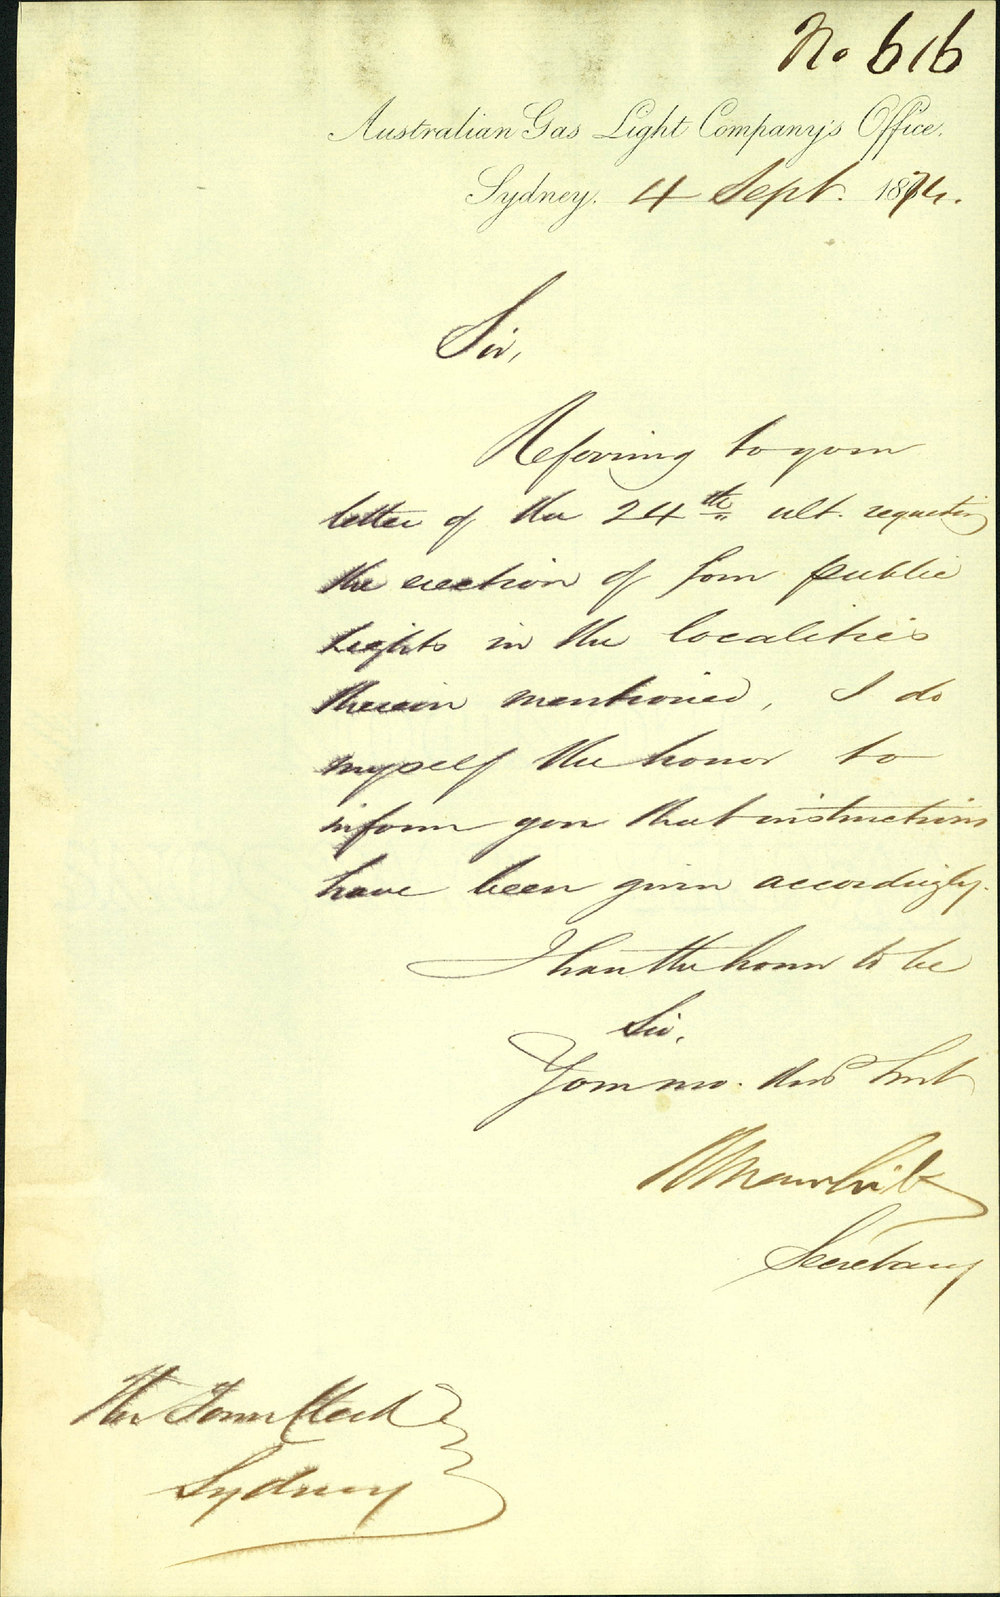 No 616
Australian Gas Light Company's Office.
Sydney. 4 Sept. 1874.
Sir,
Referring to your
letter of the 24th ult. requesting
the erection of four public
lights in the localities
therein mentioned, I do
myself the honor to
inform you that instructions
have been given accordingly.
I have the honor to be
Sir,
Your mo. Obed Svt
Secretary
The Town Clerk
Sydney